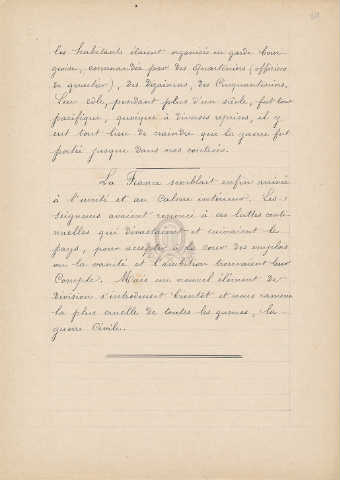 les habitants étaient organisés en garde bour-
geoise, commandée par des Quarteniers (officiers
de quartier), des Dizainiers, des Cinquanteniers.
Leur rôle, pendant plus d'un siècle, fut tout
pacifique, quoique à diverses reprises, il y
eut tout lieu de craindre que la guerre fut
portée jusque dans nos contrées.
La France semblait enfin arrivée
à l'unité et au calme intérieur. Les
seigneurs avaient renoncé à ces luttes conti-
nuelles qui dévastaient et ruinaient le
pays, pour accepter à la cour des emplois
où la vanité et l'ambition trouvaient leur
Compte. Mais un nouvel élément de
Division s'introduisit bientôt et nous ramena
la plus cruelle de toutes les guerres, la
guerre Civile.